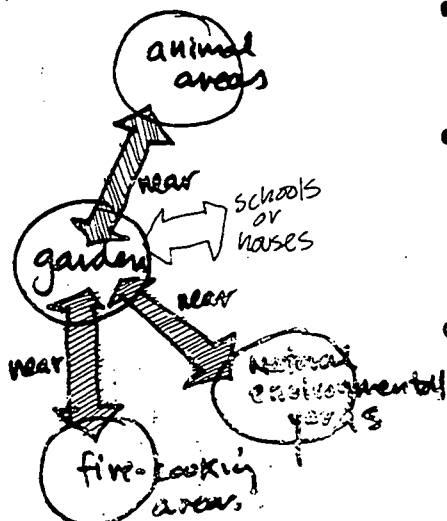 animal
areas
near
schools
or
houses
garden
near
near
natural
environmental
fire-cooking
areas.